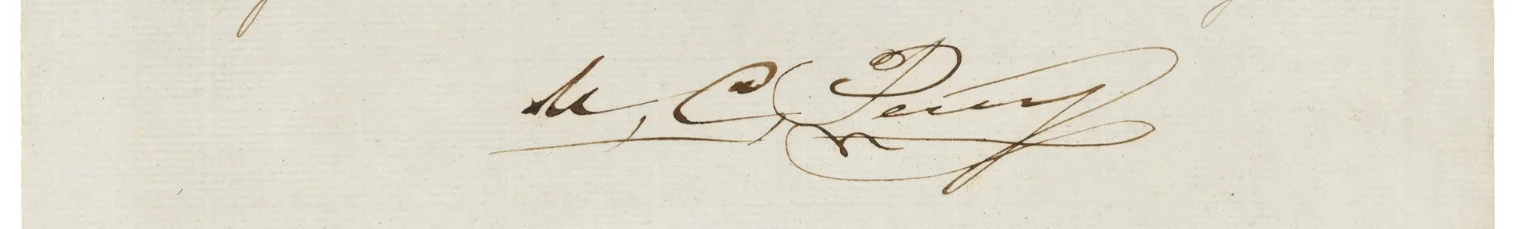 M, C, Perry